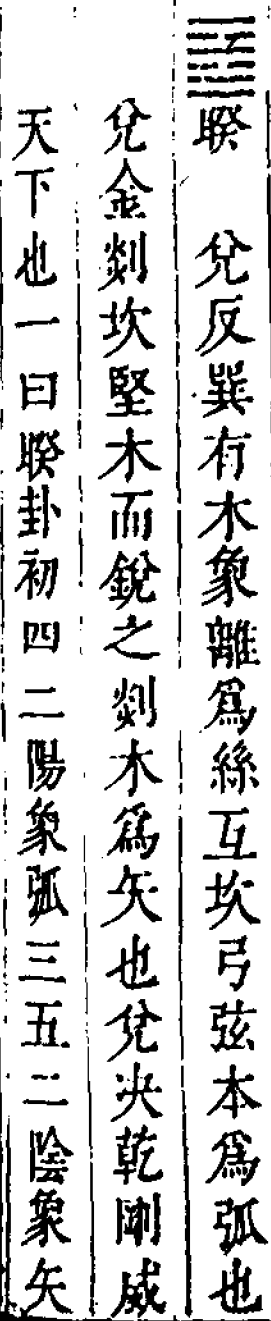 ䷥睽　兌反巽有木象離爲絲互坎弓弦本爲弧也
兌金剡坎堅木而銳之剡木爲矢也兌决乾剛威
天下也一曰睽卦初四二陽象弧三五二陰象矢